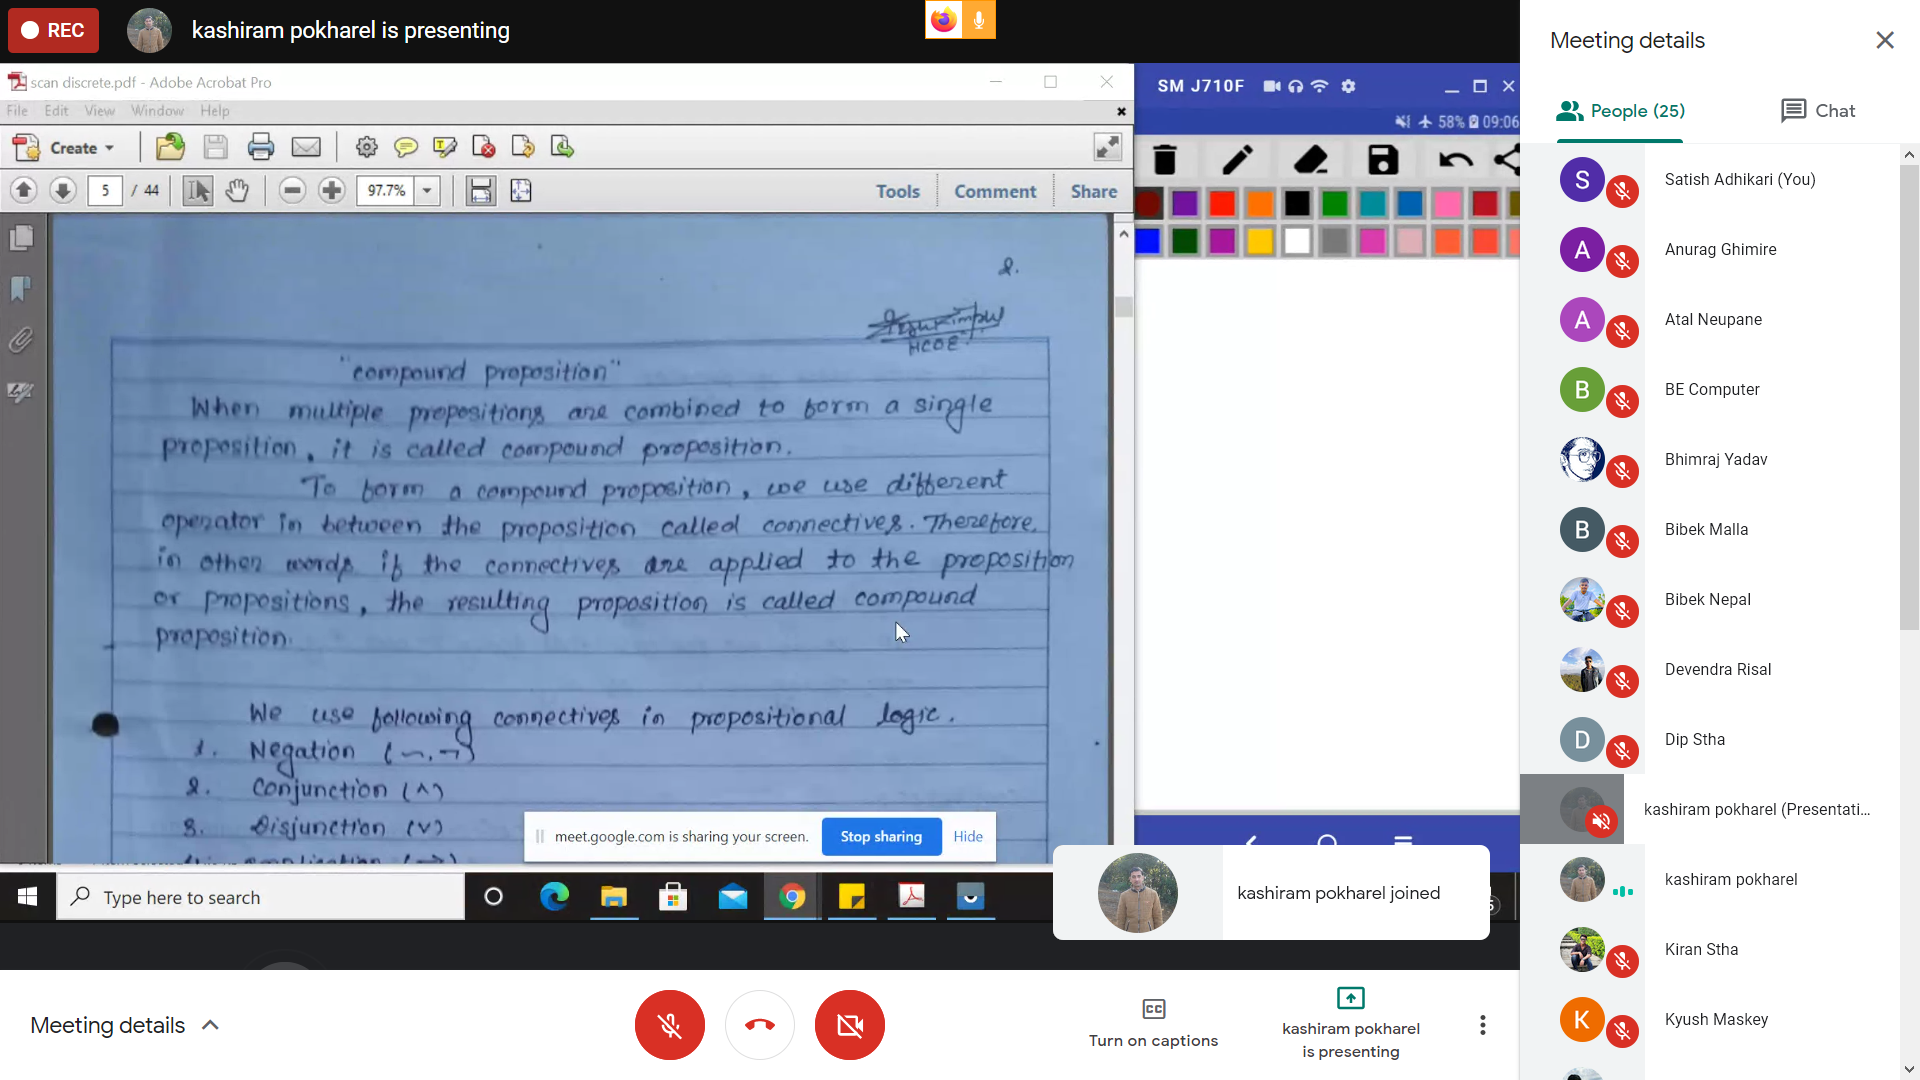 REC
kashiram pokharel is presenting
scan discrete.pdf - Adobe Acrobat Pro
File Edit View Window Help
Create
5 / 44
97.7%
Tools Comment Share
2.
HCOE
"compound proposition"
When multiple propositions are combined to form a single
proposition, it is called compound proposition.
To form a compound proposition, we use different
operator in between the proposition called connectives. Therefore,
in other words if the connectives are applied to the proposition
or propositions, the resulting proposition is called compound
proposition.
We use following connectives in propositional logic.
1. Negation (~, ¬)
2. Conjunction (^)
3. Disjunction (v)
meet.google.com is sharing your screen.
Stop sharing
Hide
Type here to search
SM J710F
58% 09:06
kashiram pokharel joined
Meeting details
Turn on captions
kashiram pokharel
is presenting
Meeting details
People (25)
Chat
S Satish Adhikari (You)
A Anurag Ghimire
A Atal Neupane
B BE Computer
Bhimraj Yadav
B Bibek Malla
Bibek Nepal
Devendra Risal
D Dip Stha
kashiram pokharel (Presentati...
kashiram pokharel
Kiran Stha
K Kyush Maskey